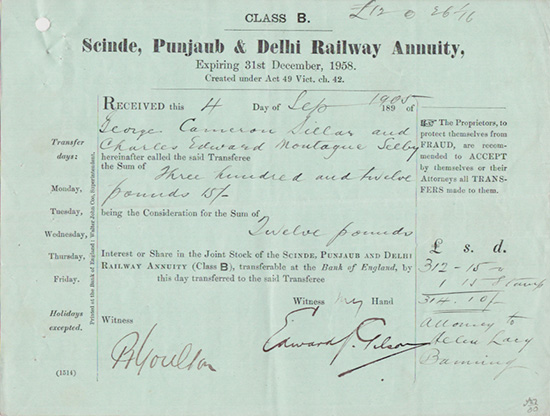 CLASS B.
£12
Scinde, Punjaub & Delhi Railway Annuity,
Expiring 31st December, 1958.
Created under Act 49 Vict. ch. 42.
RECEIVED this 4 Day of Sep 1905 189 of
George Cameron Dillar and
Charles Edward Montague Selby
hereinafter called the said Transferee
the Sum of Three hundred and twelve
pounds 15/-
being the Consideration for the Sum of
Twelve pounds
Interest or Share in the Joint Stock of the SCINDE, PUNJAUB AND DELHI
RAILWAY ANNUITY (Class B), transferable at the Bank of England, by
this day transferred to the said Transferee
Witness my Hand
Witness
Edward
Transfer
days:
Monday,
Tuesday,
Wednesday,
Thursday,
Friday.
Holidays
excepted.
(1514)
Printed at the Bank of England: Walter John Coe, Superintendent.
The Proprietors, to
protect themselves from
FRAUD, are recom-
mended to ACCEPT
by themselves or their
Attorneys all TRANS-
FERS made to them.
£ s. d.
312 - 15
314. 10/-
Attorney to
Helen Lacy